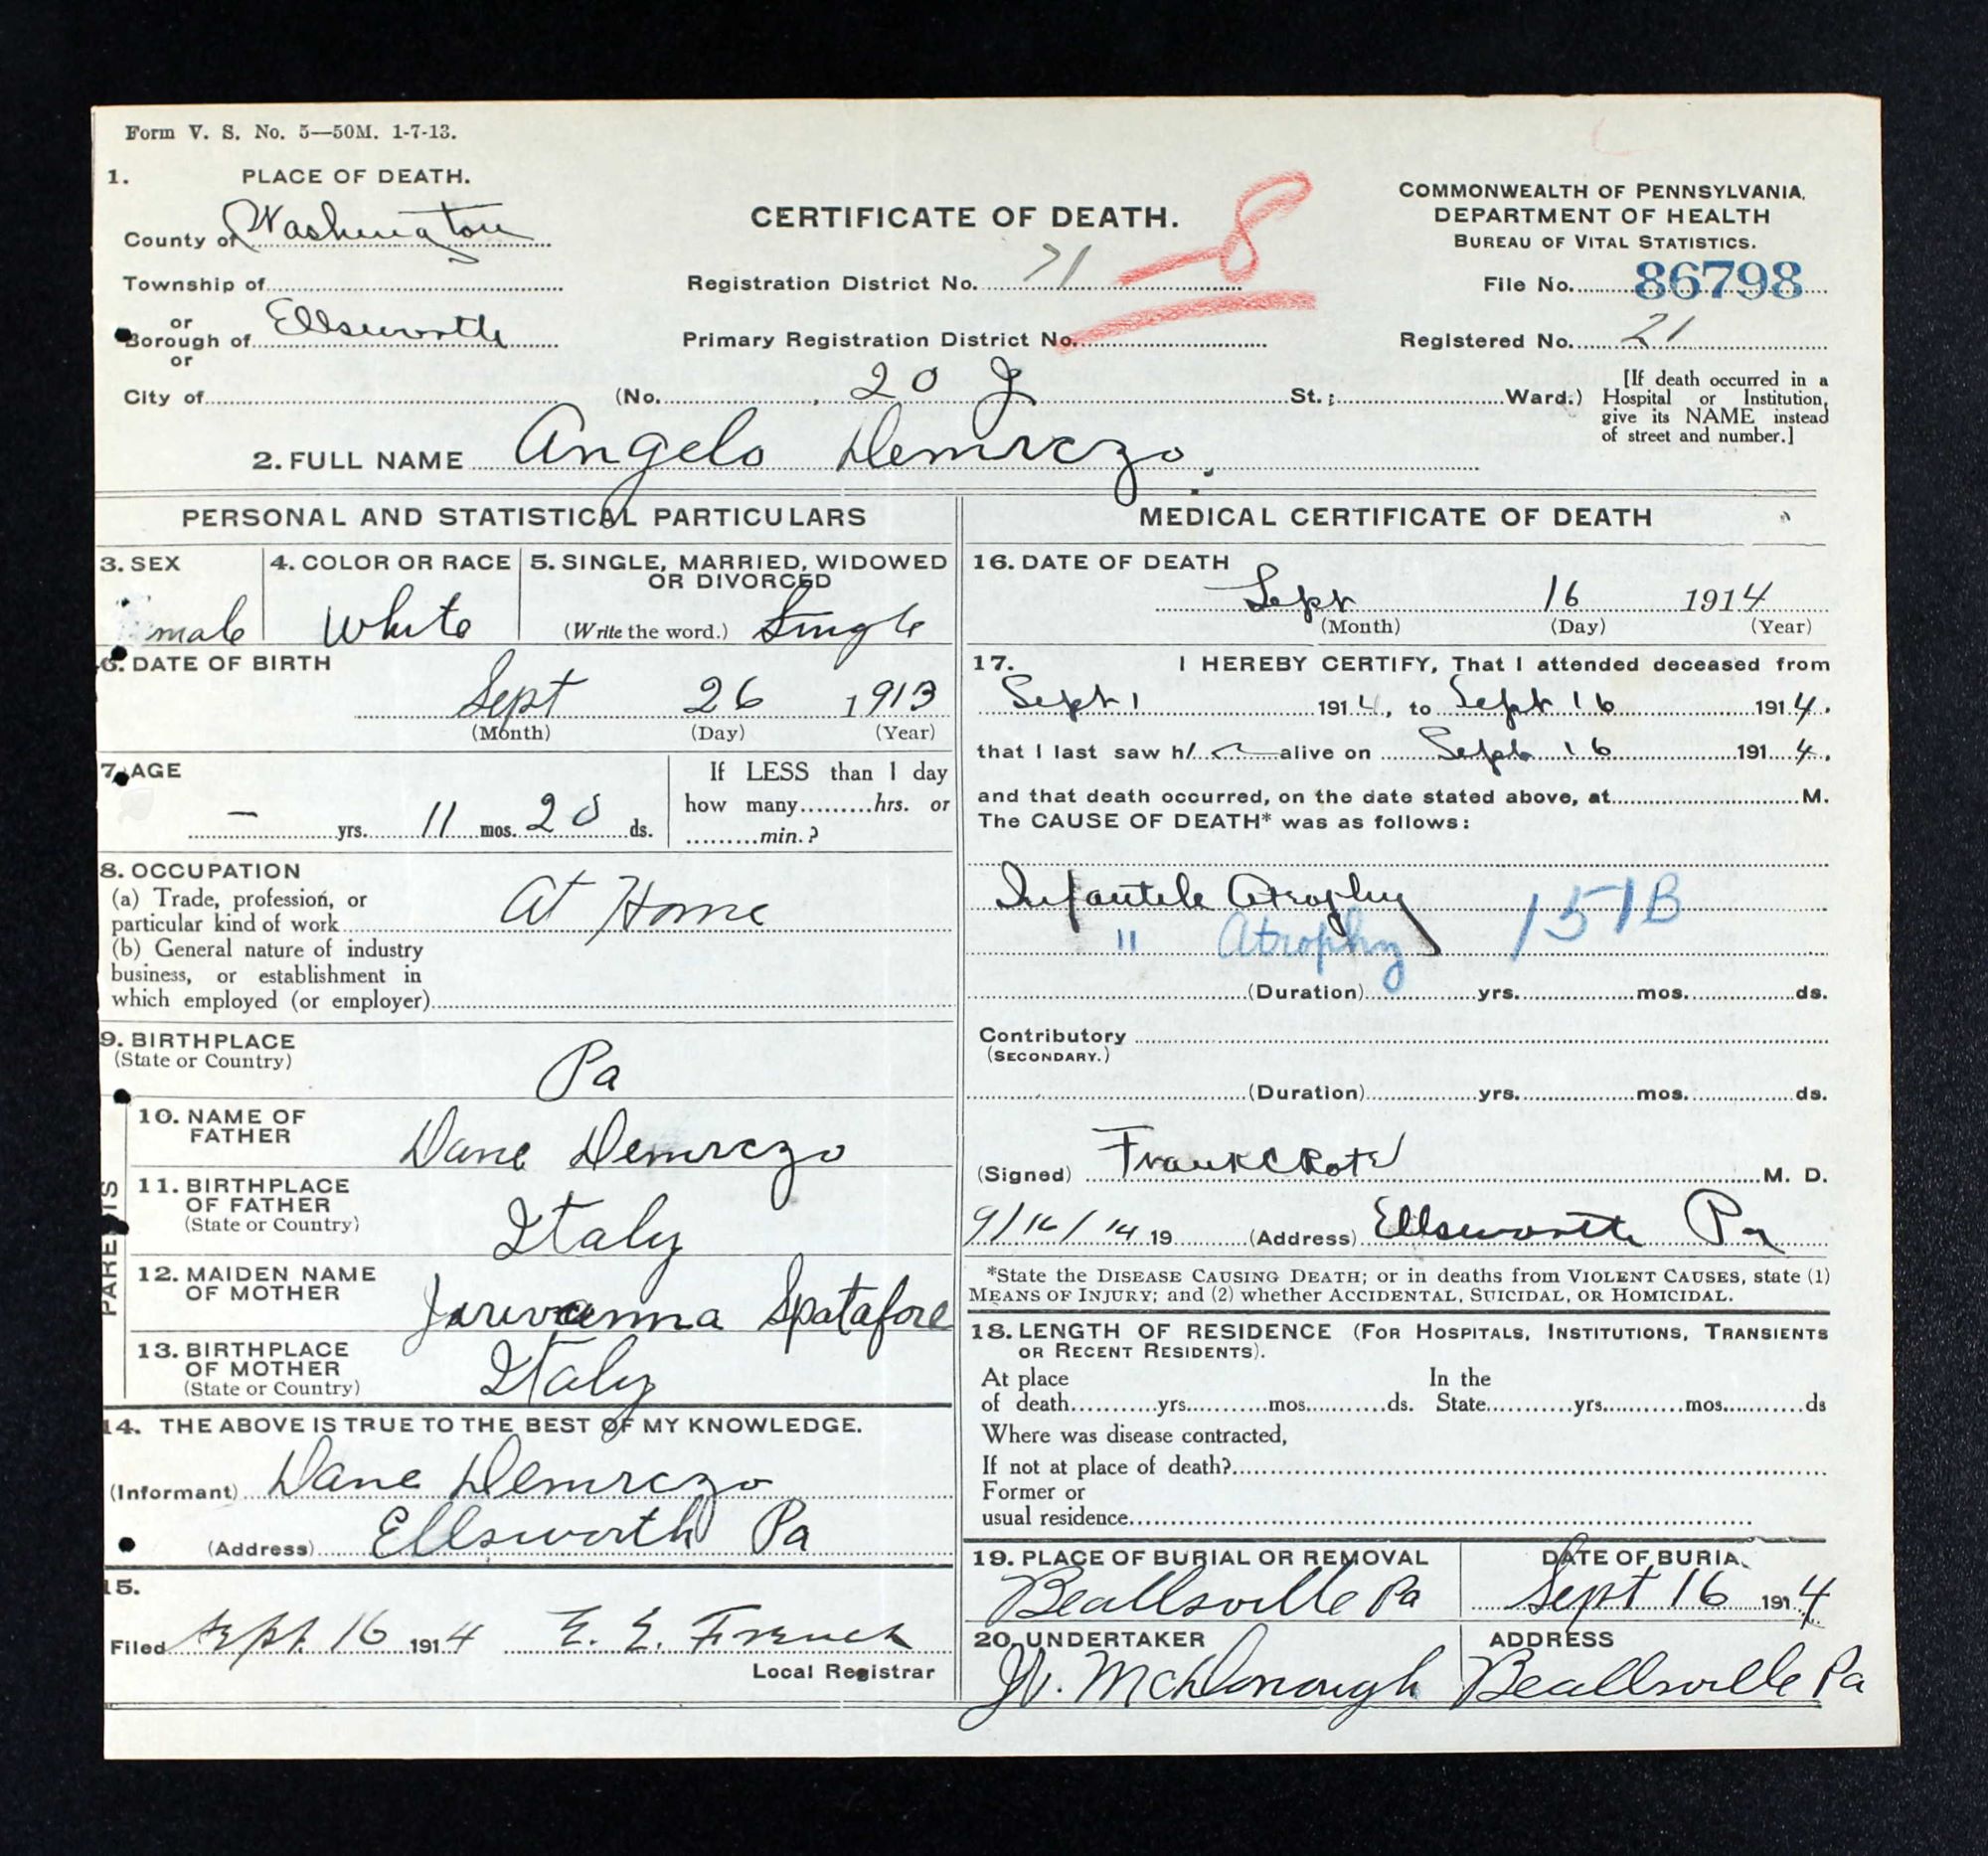 Form V. S. No. 5—50M. 1-7-13.
1. PLACE OF DEATH.
County of Washington
Township of
or
Borough of Ellsworth
or
City of
CERTIFICATE OF DEATH.
Registration District No. 71 - 8
Primary Registration District No.
(No. , 20 J St.; Ward.)
COMMONWEALTH OF PENNSYLVANIA.
DEPARTMENT OF HEALTH
BUREAU OF VITAL STATISTICS.
File No. 86798
Registered No. 21
[If death occurred in a
Hospital or Institution,
give its NAME instead
of street and number.]
2. FULL NAME Angelo Demrczo.
PERSONAL AND STATISTICAL PARTICULARS
3. SEX
male
4. COLOR OR RACE
White
5. SINGLE, MARRIED, WIDOWED
OR DIVORCED
(Write the word.) Single
6. DATE OF BIRTH
Sept 26 1913
(Month) (Day) (Year)
7. AGE
— yrs. 11 mos. 20 ds.
If LESS than 1 day
how many hrs. or
min.?
8. OCCUPATION
(a) Trade, profession, or
particular kind of work At Home
(b) General nature of industry
business, or establishment in
which employed (or employer)
9. BIRTHPLACE
(State or Country)
Pa
PARENTS
10. NAME OF
FATHER
Dane Demrczo
11. BIRTHPLACE
OF FATHER
(State or Country)
Italy
12. MAIDEN NAME
OF MOTHER
Spatafore
13. BIRTHPLACE
OF MOTHER
(State or Country)
Italy
14. THE ABOVE IS TRUE TO THE BEST OF MY KNOWLEDGE.
(Informant) Dane Demrczo
(Address) Ellsworth Pa
15.
Filed Sept. 16 1914 E. E. French
Local Registrar
MEDICAL CERTIFICATE OF DEATH
16. DATE OF DEATH
Sept 16 1914
(Month) (Day) (Year)
17. I HEREBY CERTIFY, That I attended deceased from
Sept 1 1914, to Sept 16 1914.
that I last saw h alive on Sept 16 1914.
and that death occurred, on the date stated above, at M.
The CAUSE OF DEATH* was as follows:
Infantile Atrophy 151B
" Atrophy
(Duration) yrs. mos. ds.
Contributory
(SECONDARY.)
(Duration) yrs. mos. ds.
(Signed) Frank C Rote M. D.
9/16/14 19 (Address) Ellsworth Pa
*State the DISEASE CAUSING DEATH; or in deaths from VIOLENT CAUSES, state (1)
MEANS OF INJURY; and (2) whether ACCIDENTAL, SUICIDAL, OR HOMICIDAL.
18. LENGTH OF RESIDENCE (FOR HOSPITALS, INSTITUTIONS, TRANSIENTS
OR RECENT RESIDENTS).
At place
of death yrs. mos. ds.
In the
State yrs. mos. ds
Where was disease contracted,
If not at place of death?
Former or
usual residence
19. PLACE OF BURIAL OR REMOVAL
Beallsville Pa
DATE OF BURIAL
Sept 16 1914
20. UNDERTAKER
McDonough
ADDRESS
Beallsville Pa